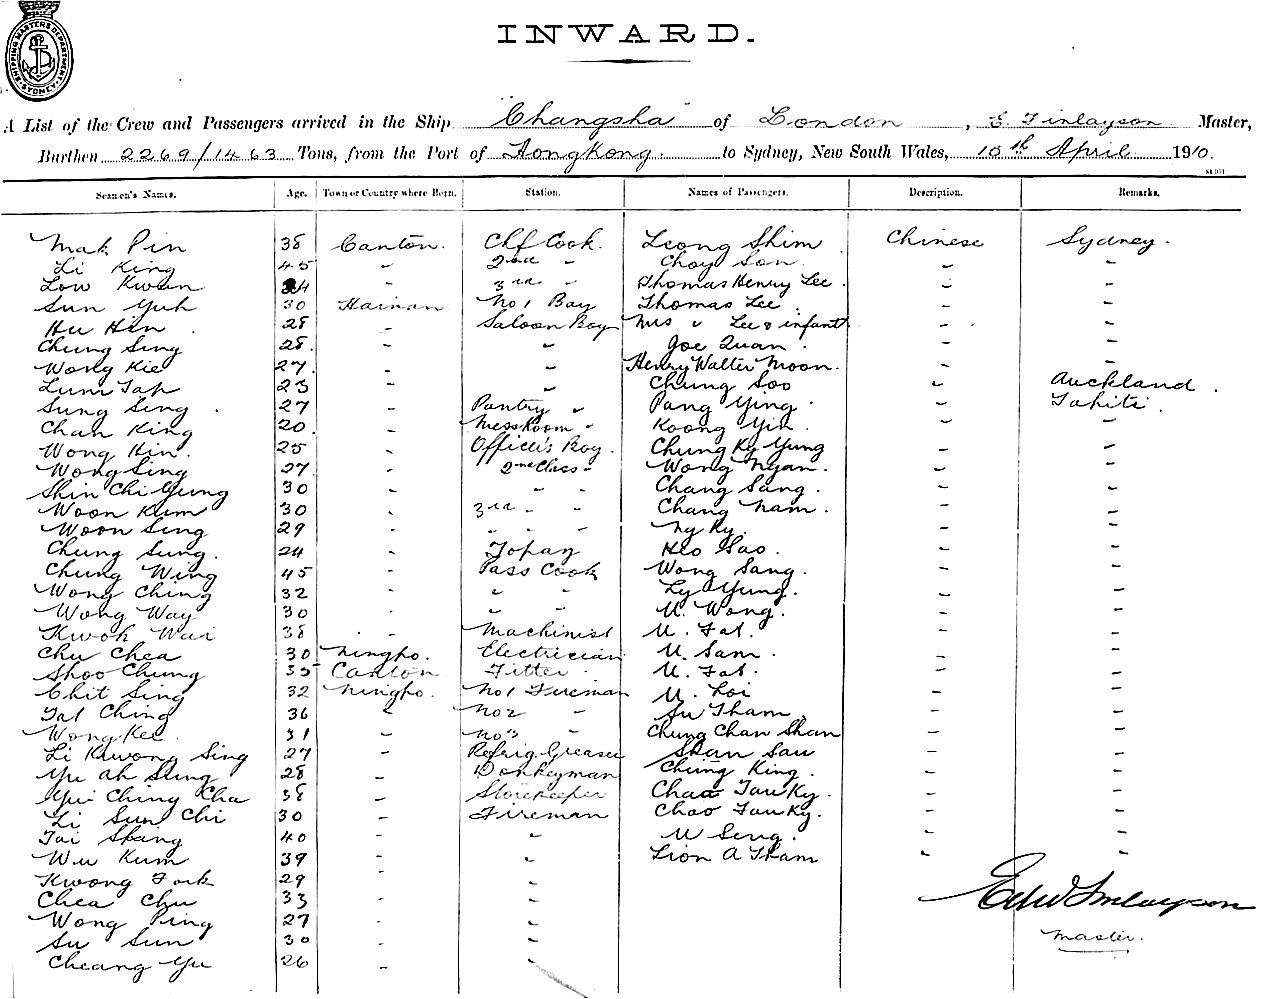 SHIPPING MASTERS DEPARTMENT SYDNEY
INWARD.
A List of the Crew and Passengers arrived in the Ship "Changsha" of London, E. Finlayson Master,
Burthen 2269/1463 Tons, from the Port of Hongkong to Sydney, New South Wales, 10th April 1910.
Seamen's Names. Age. Town or Country where Born. Station. Names of Passengers. Description. Remarks.
Mak Pin 38 Canton. Chf Cook. Leong Shim Chinese Sydney.
Li King 45 " 2nd " Choy Son " "
Low Kwan 34 " 3rd " Thomas Henry Lee " "
Sun Yuh 30 Hainan No 1 Boy Thomas Lee " "
Hu Hin 28 " Saloon Boy Mrs " Lee & infant " "
Chung Sing 28 " " Joe Quan " "
Wong Kie 27 " " Henry Walter Moon " "
Lum Tap 23 " " Chung Soo " Auckland.
Sung Sing 27 " Pantry " Pang Ying " Tahiti.
Chan King 20 " Messroom " Koong Yin " "
Wong Hin 25 " Officer's Boy Chung Ky Yung " "
Wong Sing 27 " 2nd Class " Wong Ngan " "
Shin Chi Yung 30 " " " Chang Sang " "
Woon Kum 30 " 3rd " " Chang Nam " "
Woon Sing 29 " " " " Ny Ky " "
Chung Sung. 24 " Topaz Heo Sao " "
Chung Wing 45 " Pass Cook Wong Sang " "
Wong Ching 32 " " " Ly Yung " "
Wong Way 30 " " " U. Wong " "
Kwok Wai 38 " Machinist U. Fat. " "
Chu Chea 30 Ningpo. Electrician U. Sam " "
Shoo Chung 35 Canton Fitter U. Fat. " "
Chit Sing 32 Ningpo. No 1 Fireman U. Loi " "
Tat Ching 36 " No 2 " Su Tham " "
Wong Kee 31 " No 3 " Chung Chan Shan " "
Li Kwong Sing 27 " Refrig Greaser Shan Sau " "
Yu Ah Sung 28 " Donkeyman Chung King " "
Yui Ching Cha 38 " Storekeeper Chao Tau Ky. " "
Li Sun Chi 30 " Fireman Chao Fau Ky. " "
Tai Shang 40 " " U Seng " "
Wu Kum 39 " " Lion A Tham " "
Kwong Fook 29 " "
Chea Chu 33 " " Edw Finlayson
Wong Ping 27 " "
Su Sun 30 " " Master.
Cheang Yu 26 " "